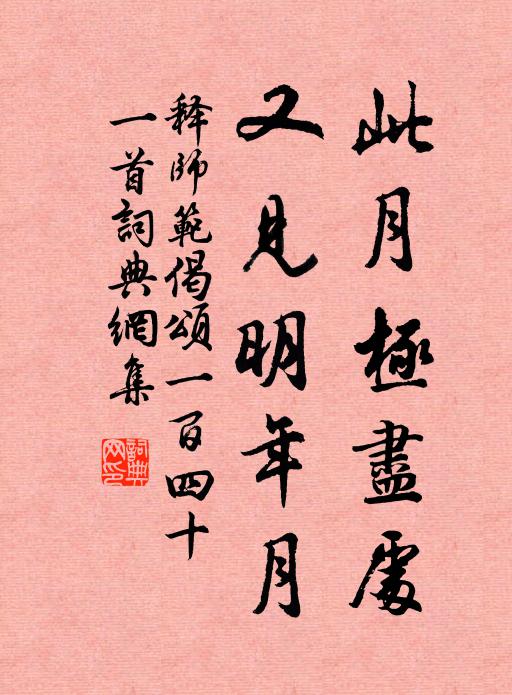 此月極盡處
又見明年月
释師範偈頌一百四十
一首詞典網集
詞典网印